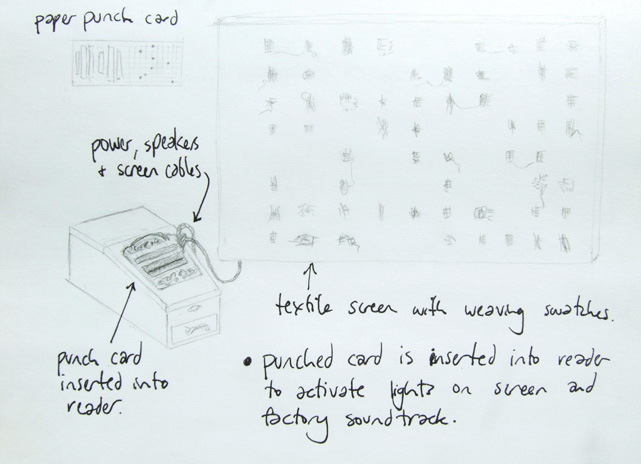 paper punch card
power, speakers
+ screen cables
textile screen with weaving swatches.
punch card
inserted into
reader.
• punched card is inserted into reader
to activate lights on screen and
factory soundtrack.